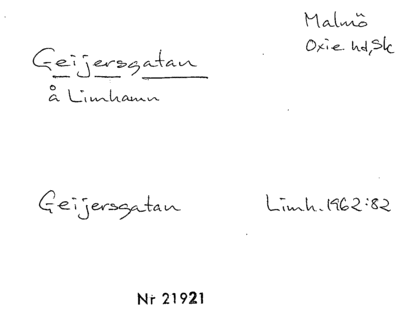 Malmö
Oxie hd, Sk
Geijersgatan
å Limhamn
Geijersgatan Limh. 1962:82
Nr 21921